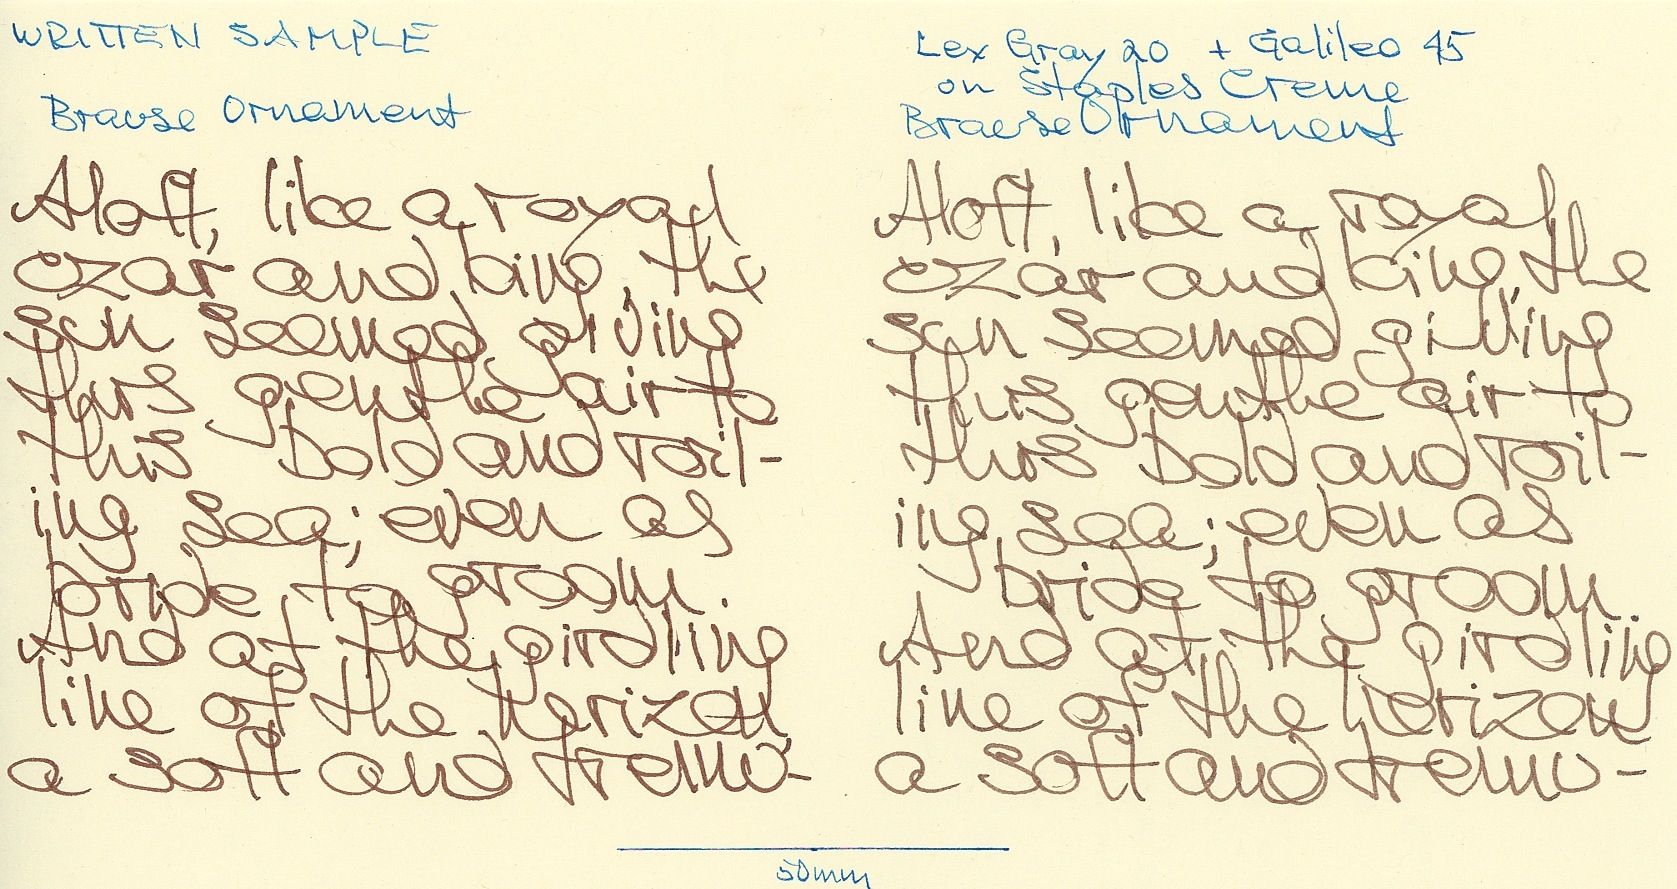 WRITTEN SAMPLE
Brause Ornament
Aloft, like a royal
czar and king, the
sun seemed giving
this gentle air to
this bold and roil-
ing sea; even as
bride to groom.
And at the girdling
line of the horizon
a soft and tremu-
Lex Gray 20 + Galileo 45
on Staples Creme
Brause Ornament
Aloft, like a royal
czar and king, the
sun seemed giving
this gentle air to
this bold and roil-
ing sea; even as
bride to groom.
And at the girdling
line of the horizon
a soft and tremu-
50mm